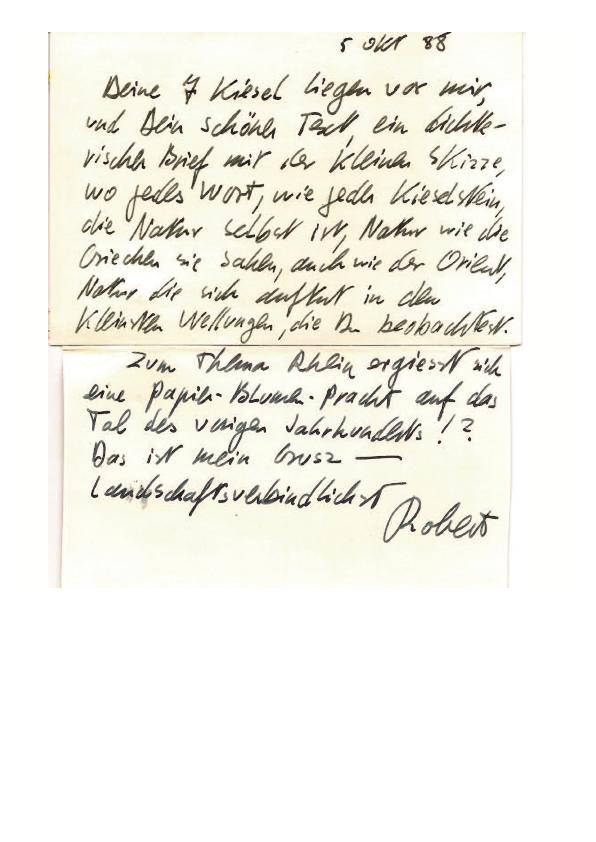 5 Okt 88
Deine 7 Kiesel liegen vor mir,
und Dein schöner Text, ein dichte-
rischer Brief mit der kleinen Skizze,
wo jedes Wort, wie jeder Kieselstein,
die Natur selbst ist, Natur wie die
Griechen sie sahen, auch wie der Orient,
Natur die sich auftut in den
kleinsten Wellungen, die Du beobachtest.
Zum Thema Rhein ergiesst sich
eine Papier-Blumen-Pracht auf das
Tal des vorigen Jahrhunderts!?
Das ist mein Grusz —
Landschaftsverbindlichst
Robert